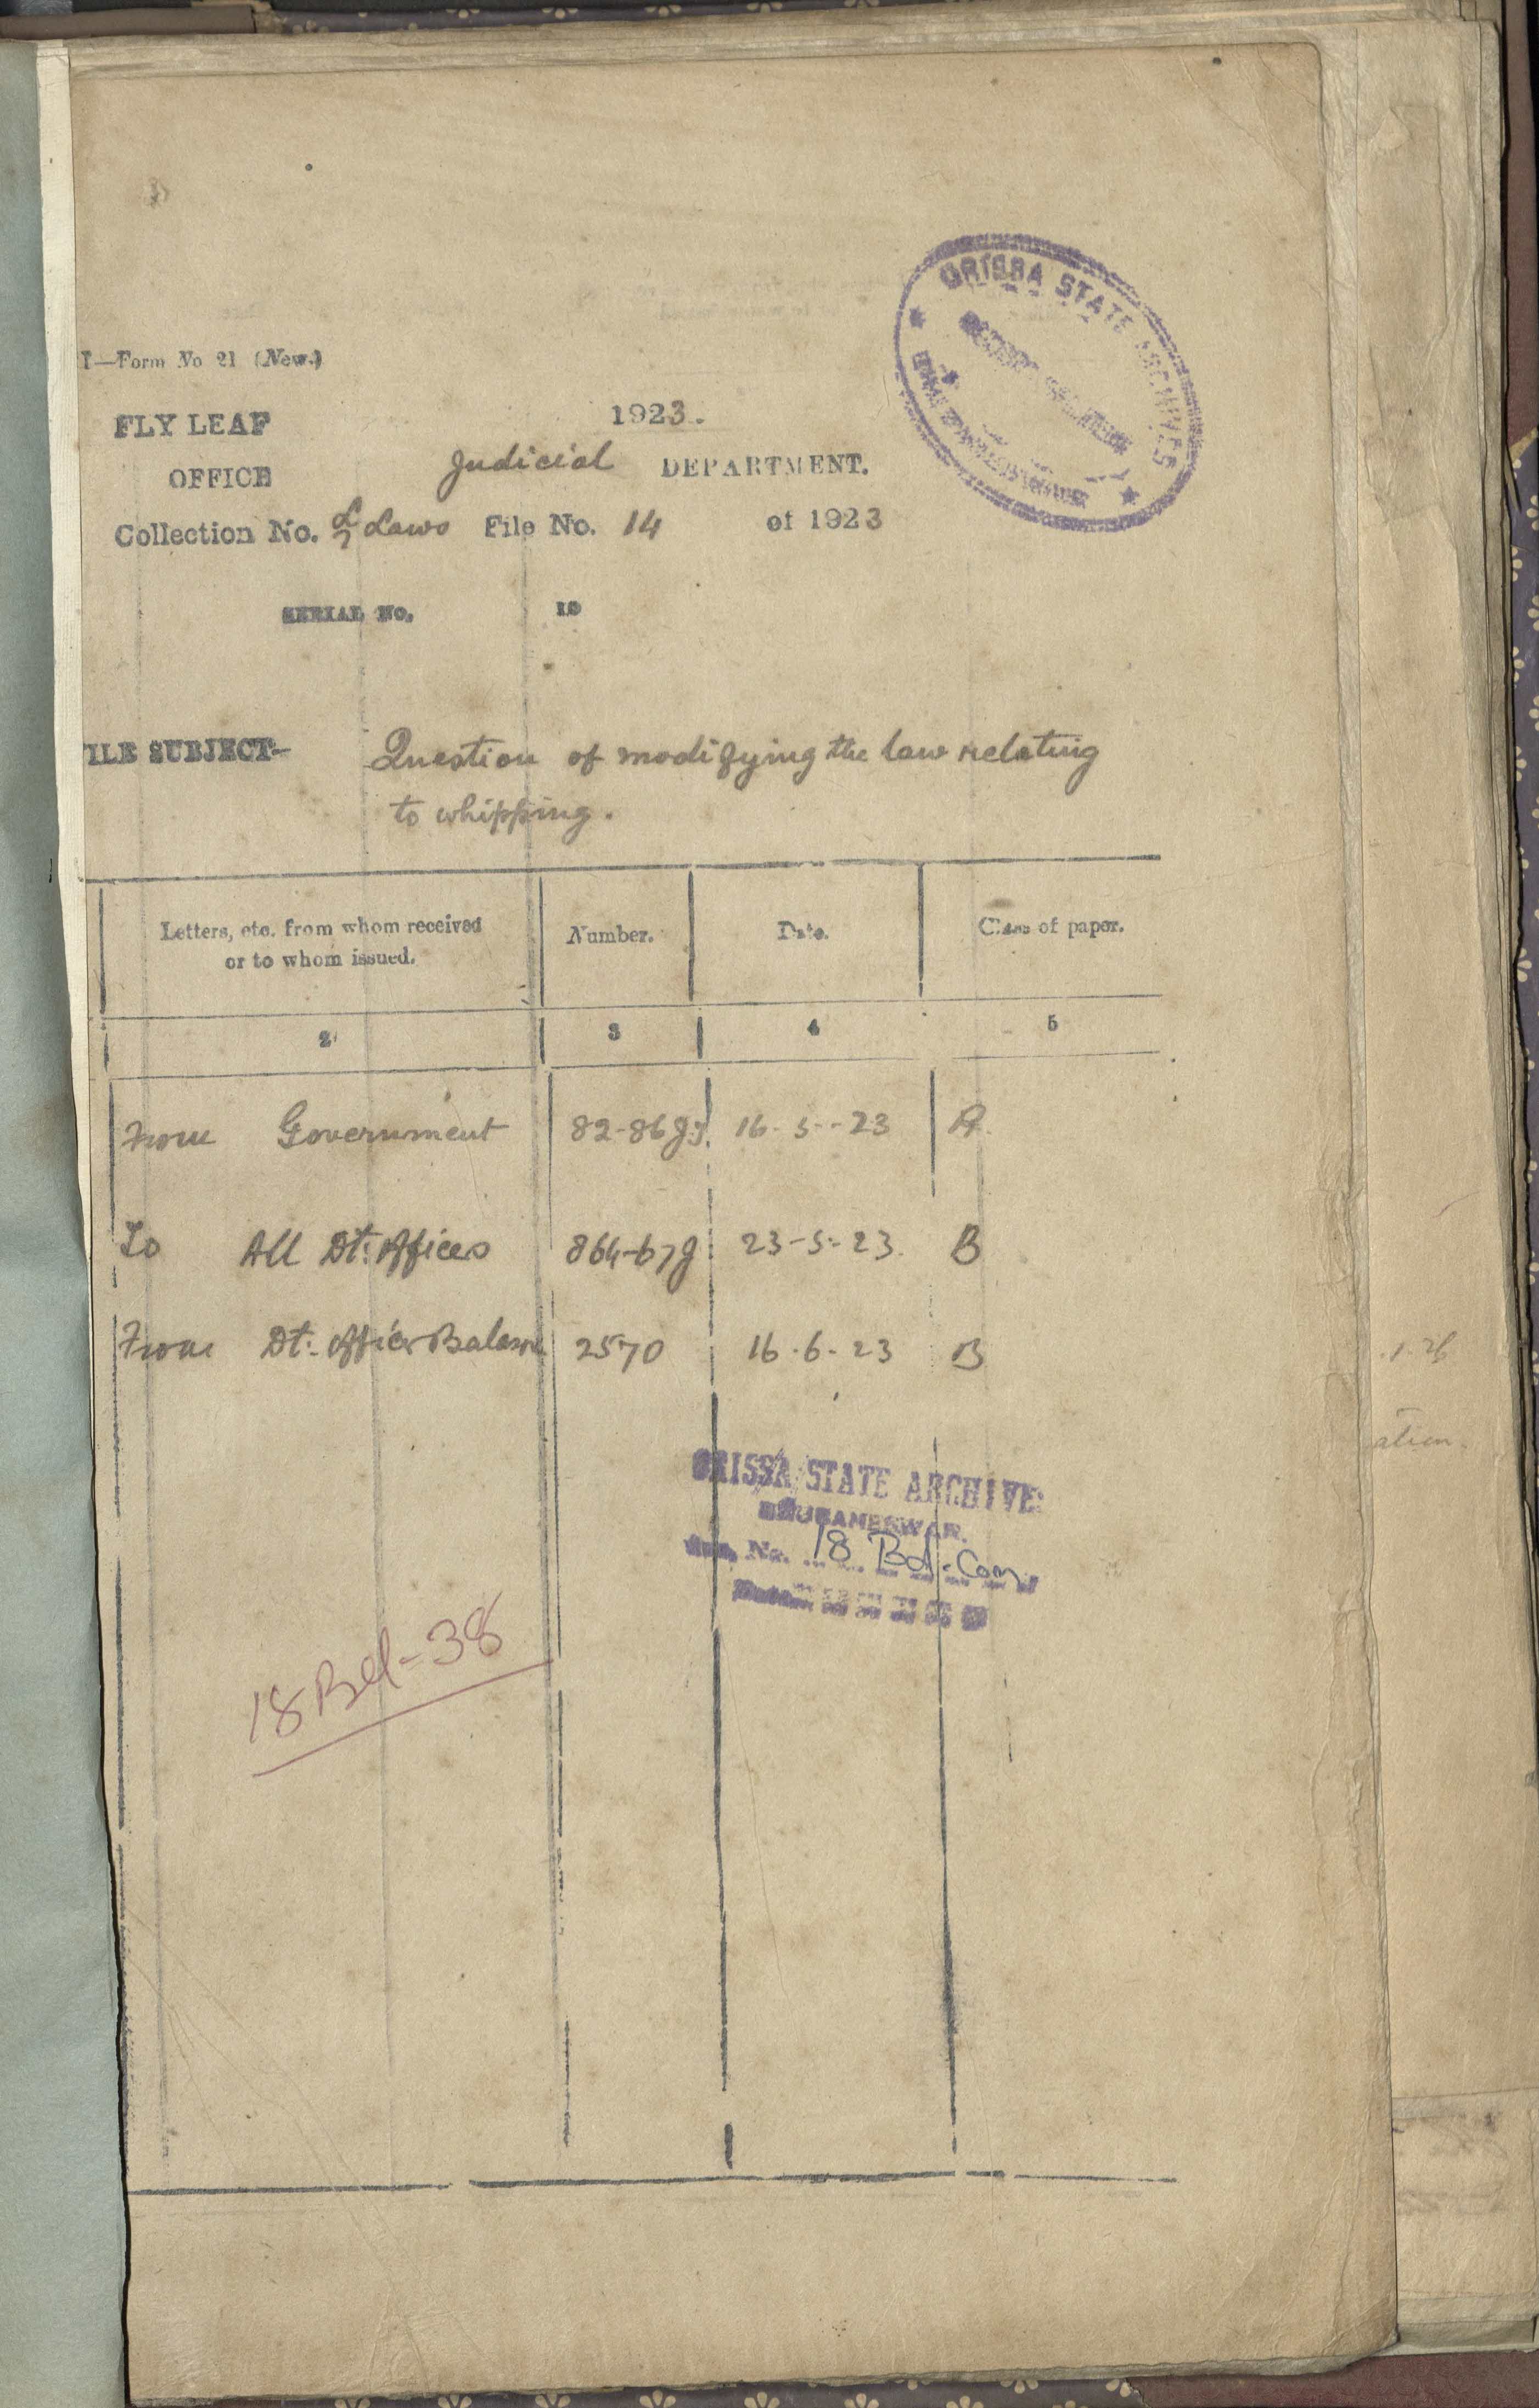 I—Form No 21 (New.)
FLY LEAF 1923.
OFFICE Judicial DEPARTMENT.
Collection No. Laws File No. 14 of 1923
SERIAL NO. 10
ILE SUBJECT— Question of modifying the law relating
to whipping.
Letters, etc. from whom received
or to whom issued. Number. Date. Class of paper.
2 3 4 5
From Government 82-86 16-5--23 A.
To All Dt. Officers 864-67g 23-5-23. B
From Dt. Officer Balasore 2570 16.6-23 B
ORISSA STATE ARCHIVES
BHUBANESWAR.
No. 18 Bd.-Com.
18 Bd-38
ORISSA STATE ARCHIVES
ation